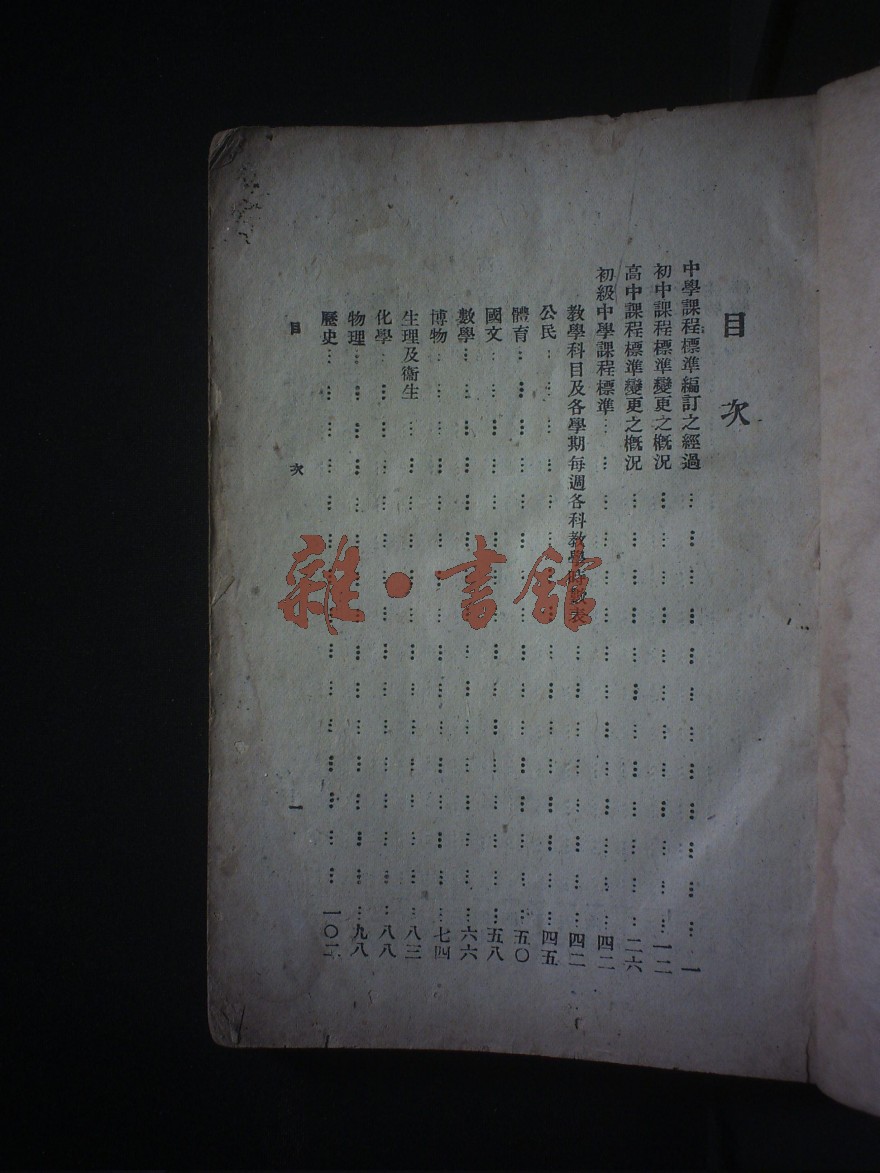 目次
中學課程標準編訂之經過……一
初中課程標準變更之概況……一二
高中課程標準變更之概況……二六
初級中學課程標準……四二
教學科目及各學期每週各科教學時數表……四二
公民……四五
體育……五〇
國文……五八
數學……六六
博物……七四
生理及衞生……八三
化學……八八
物理……九八
歷史……一〇二
目次 一
雜·書館